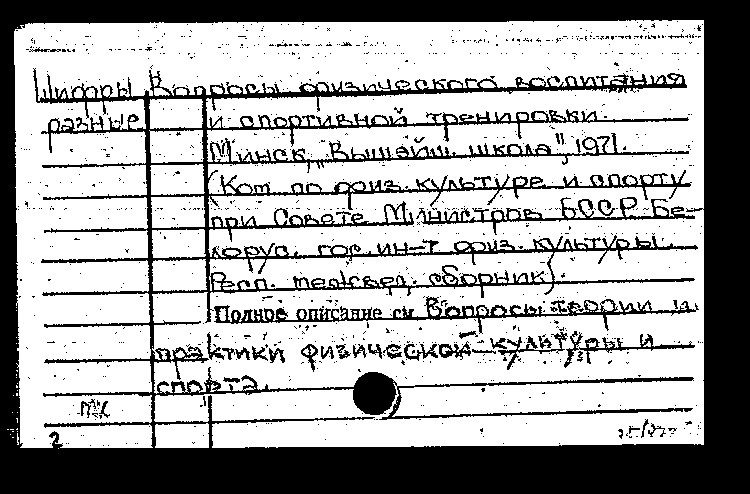 Шифры Вопросы физического воспитания
разные и спортивной тренировки.
Минск, "Вышэйш. школа", 1971.
(Ком. по физ. культуре и спорту
при Совете Министров БССР. Бе-
лорус. гос. ин-т физ. культуры.
Респ. межвед. сборник).
Полное описание см Вопросы теории и
практики физической культуры и
спорта.
2